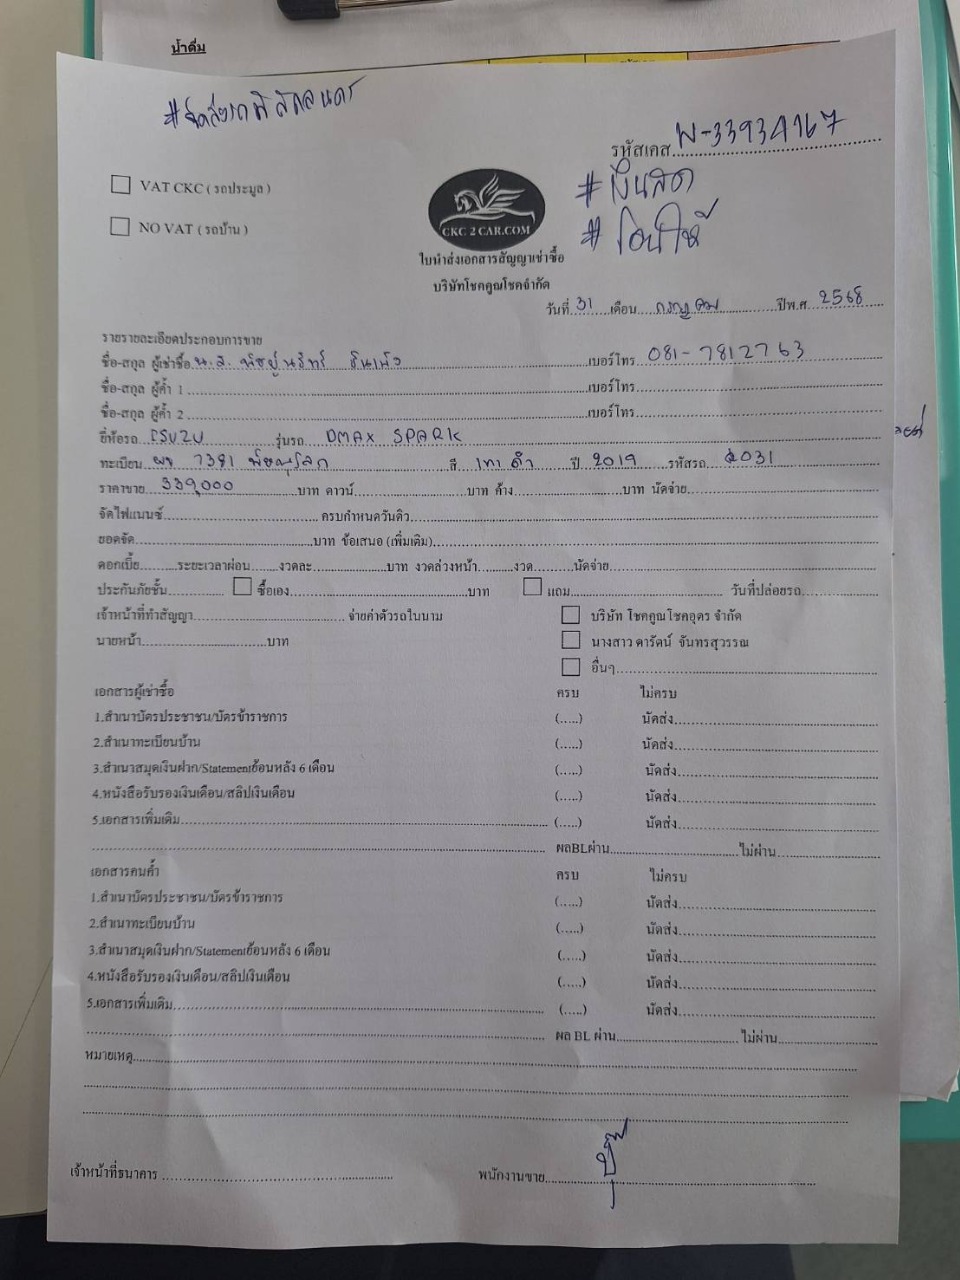 น้ำดื่ม
รหัสเคส N-33934167
VAT CKC ( รถประมูล )
#เงินสด
NO VAT ( รถบ้าน )
#โอนให้
CKC 2 CAR.COM
ใบนำส่งเอกสารสัญญาเช่าซื้อ
บริษัทโชคคูณโชคจำกัด
วันที่ 31 เดือน กรกฎาคม ปีพ.ศ. 2568
รายรายละเอียดประกอบการขาย
ชื่อ-สกุล ผู้เช่าซื้อ น.ส. เบอร์โทร 081-7812763
ชื่อ-สกุล ผู้ค้ำ 1 เบอร์โทร
ชื่อ-สกุล ผู้ค้ำ 2 เบอร์โทร
ยี่ห้อรถ ISUZU รุ่นรถ DMAX SPARK
ทะเบียน 7381 พิษณุโลก สี เทาดำ ปี 2019 รหัสรถ 2031
ราคาขาย 339,000 บาท ดาวน์ บาท ค้าง บาท นัดจ่าย
จัดไฟแนนซ์ ครบกำหนดวันคิว
ยอดจัด บาท ข้อเสนอ (เพิ่มเติม)
ดอกเบี้ย ระยะเวลาผ่อน งวดละ บาท งวดล่วงหน้า งวด นัดจ่าย
ประกันภัยชั้น ซื้อเอง บาท แถม วันที่ปล่อยรถ
เจ้าหน้าที่ทำสัญญา จ่ายค่าตัวรถในนาม บริษัท โชคคูณโชคอุดร จำกัด
นายหน้า บาท นางสาว ดารัตน์ จันทรสุวรรณ
อื่นๆ
เอกสารผู้เช่าซื้อ ครบ ไม่ครบ
1.สำเนาบัตรประชาชน/บัตรข้าราชการ (.....) นัดส่ง
2.สำเนาทะเบียนบ้าน (.....) นัดส่ง
3.สำเนาสมุดเงินฝาก/Statementย้อนหลัง 6 เดือน (.....) นัดส่ง
4.หนังสือรับรองเงินเดือน/สลิปเงินเดือน (.....) นัดส่ง
5.เอกสารเพิ่มเติม (.....) นัดส่ง
ผลBLผ่าน ไม่ผ่าน
เอกสารคนค้ำ ครบ ไม่ครบ
1.สำเนาบัตรประชาชน/บัตรข้าราชการ (.....) นัดส่ง
2.สำเนาทะเบียนบ้าน (.....) นัดส่ง
3.สำเนาสมุดเงินฝาก/Statementย้อนหลัง 6 เดือน (.....) นัดส่ง
4.หนังสือรับรองเงินเดือน/สลิปเงินเดือน (.....) นัดส่ง
5.เอกสารเพิ่มเติม (.....) นัดส่ง
ผล BL ผ่าน ไม่ผ่าน
หมายเหตุ
เจ้าหน้าที่ธนาคาร พนักงานขาย